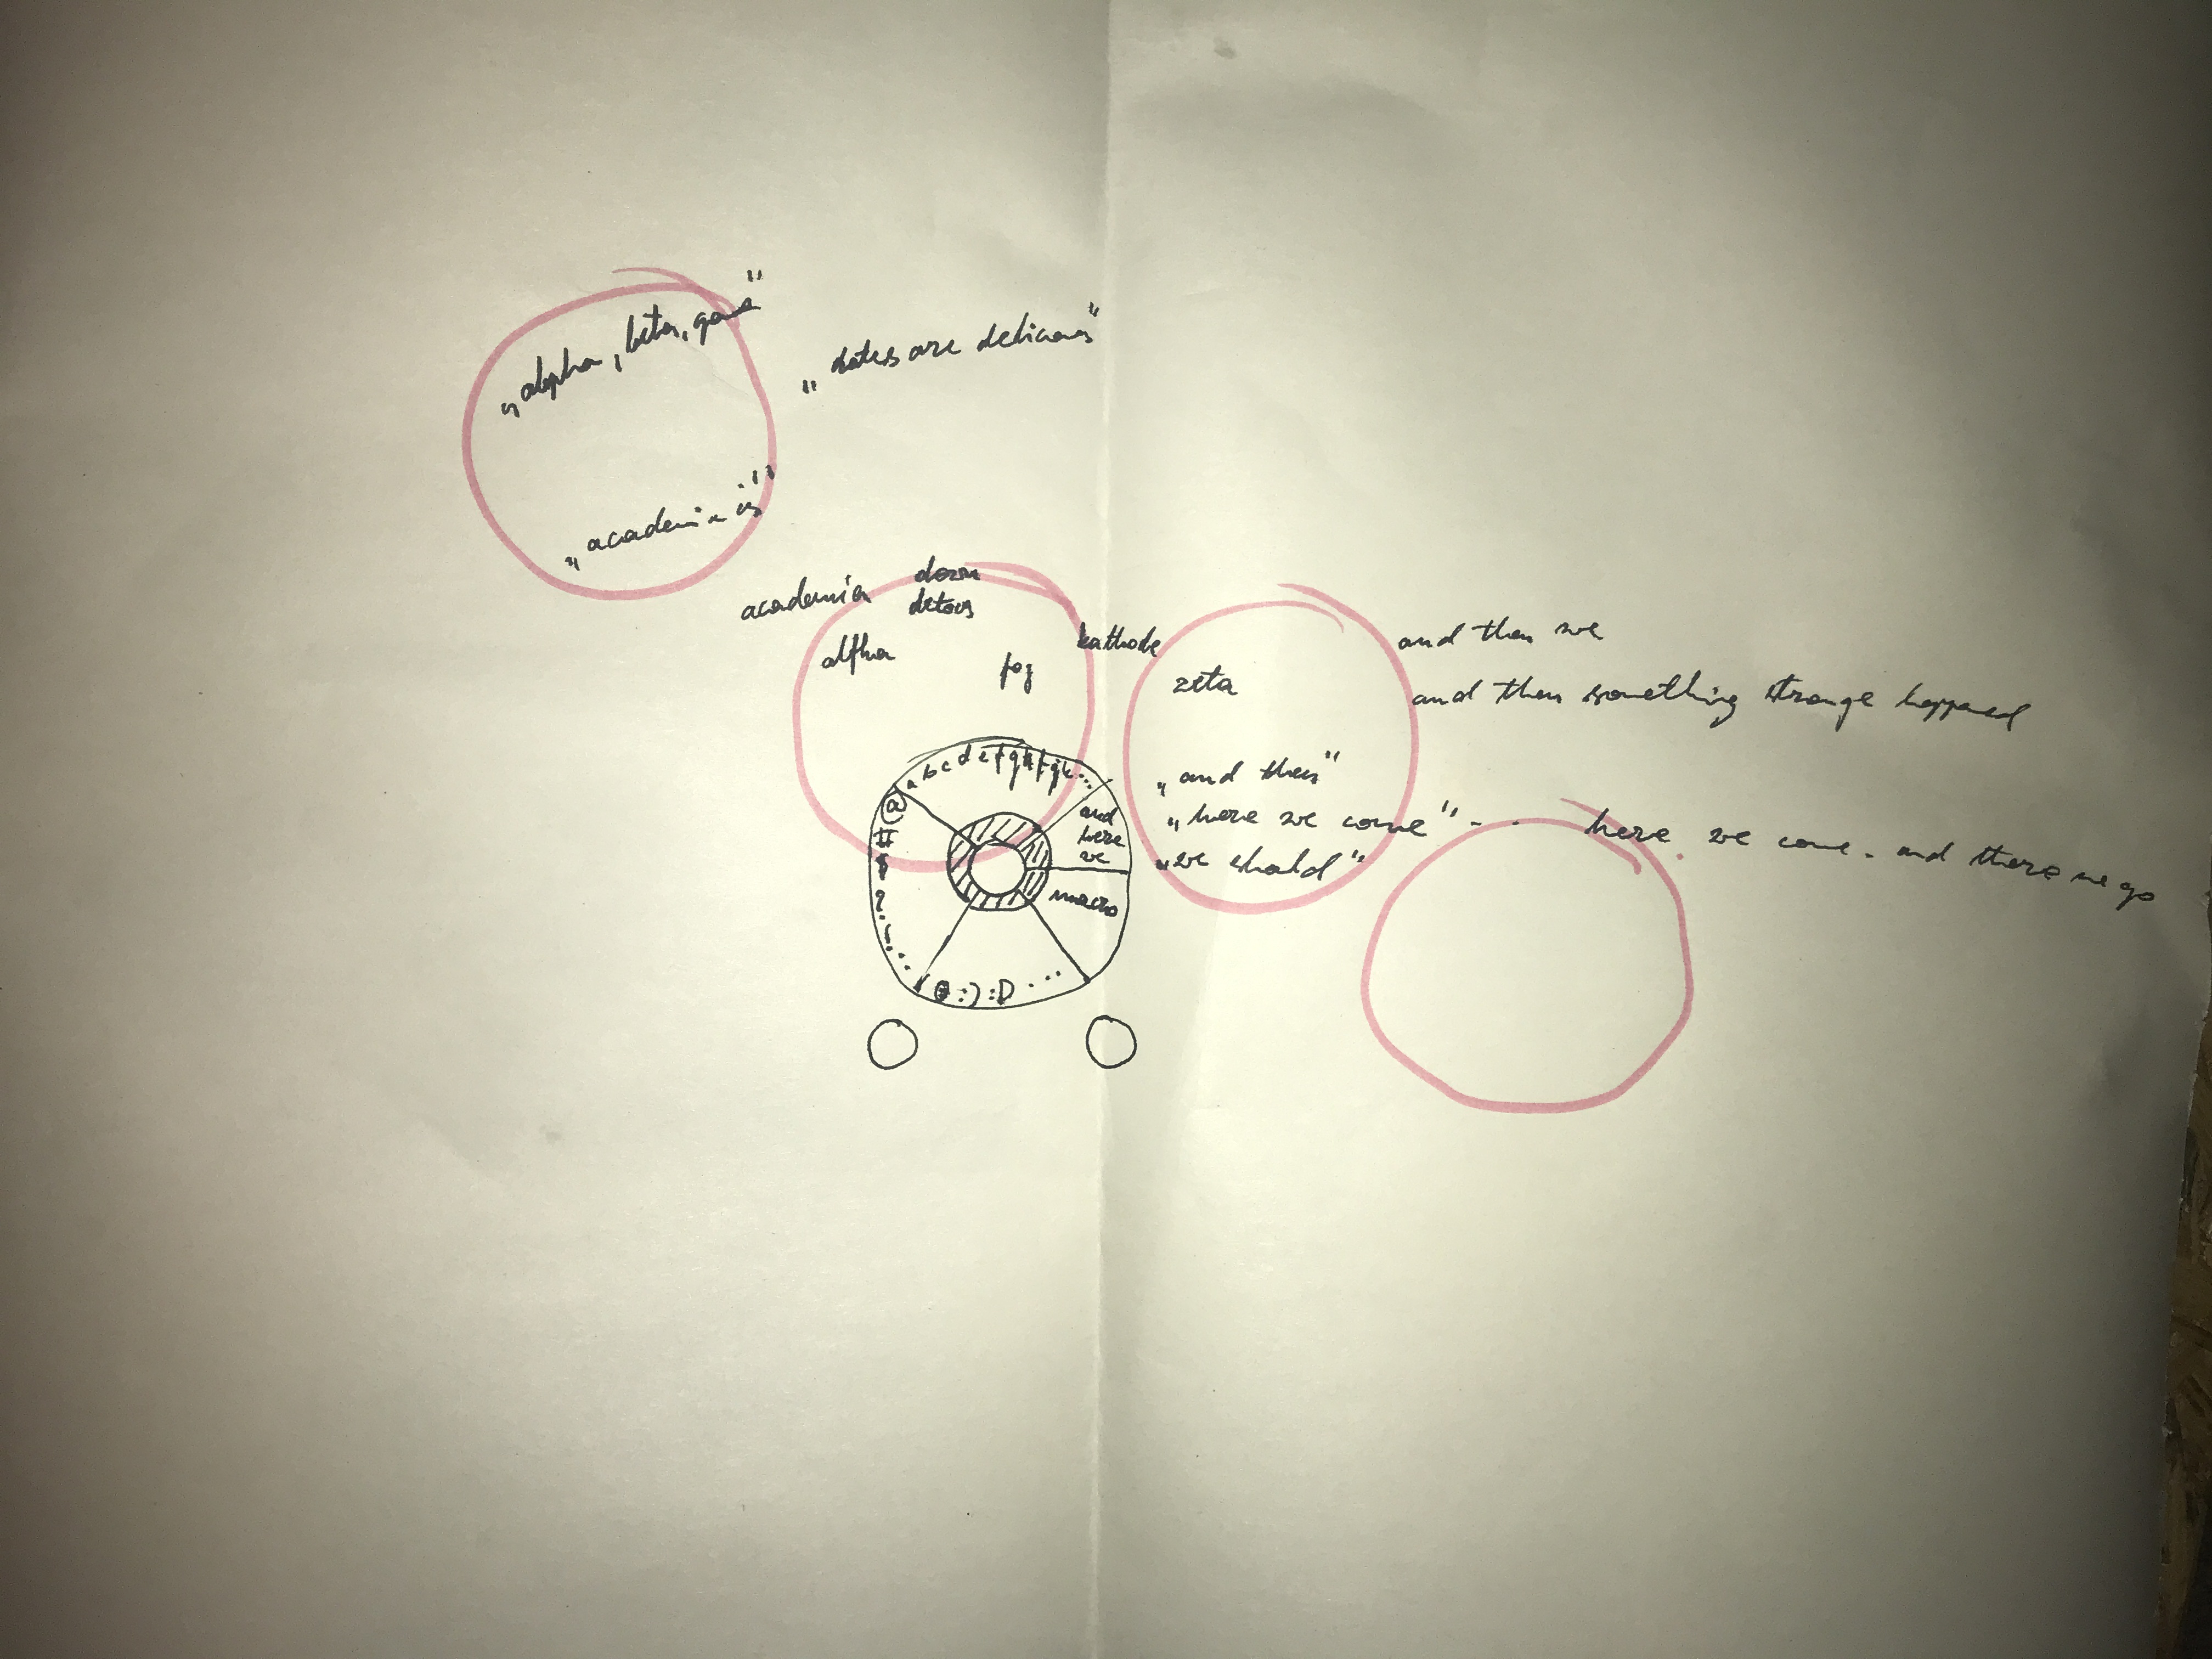 „alpha, beta, gama"
„dates are delicious"
„academia is"
academia
alfha
fog
kathode
zeta
and then we
and then something strange happened
„and then"
„here we come" - -
„we should"
here we come - and there we go
a b c d e f g h
@
#
$
?
and
here
we
macro
:) :D ...